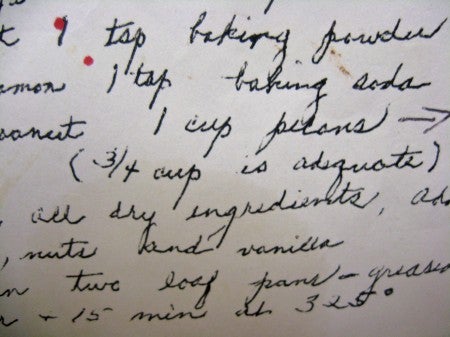 t 1 tsp baking powder
amon 1 tsp baking soda
oconut 1 cup pecans →
(3/4 cup is adequate)
, all dry ingredients, add
, nuts and vanilla
in two loaf pans - grease
r + 15 min at 325°